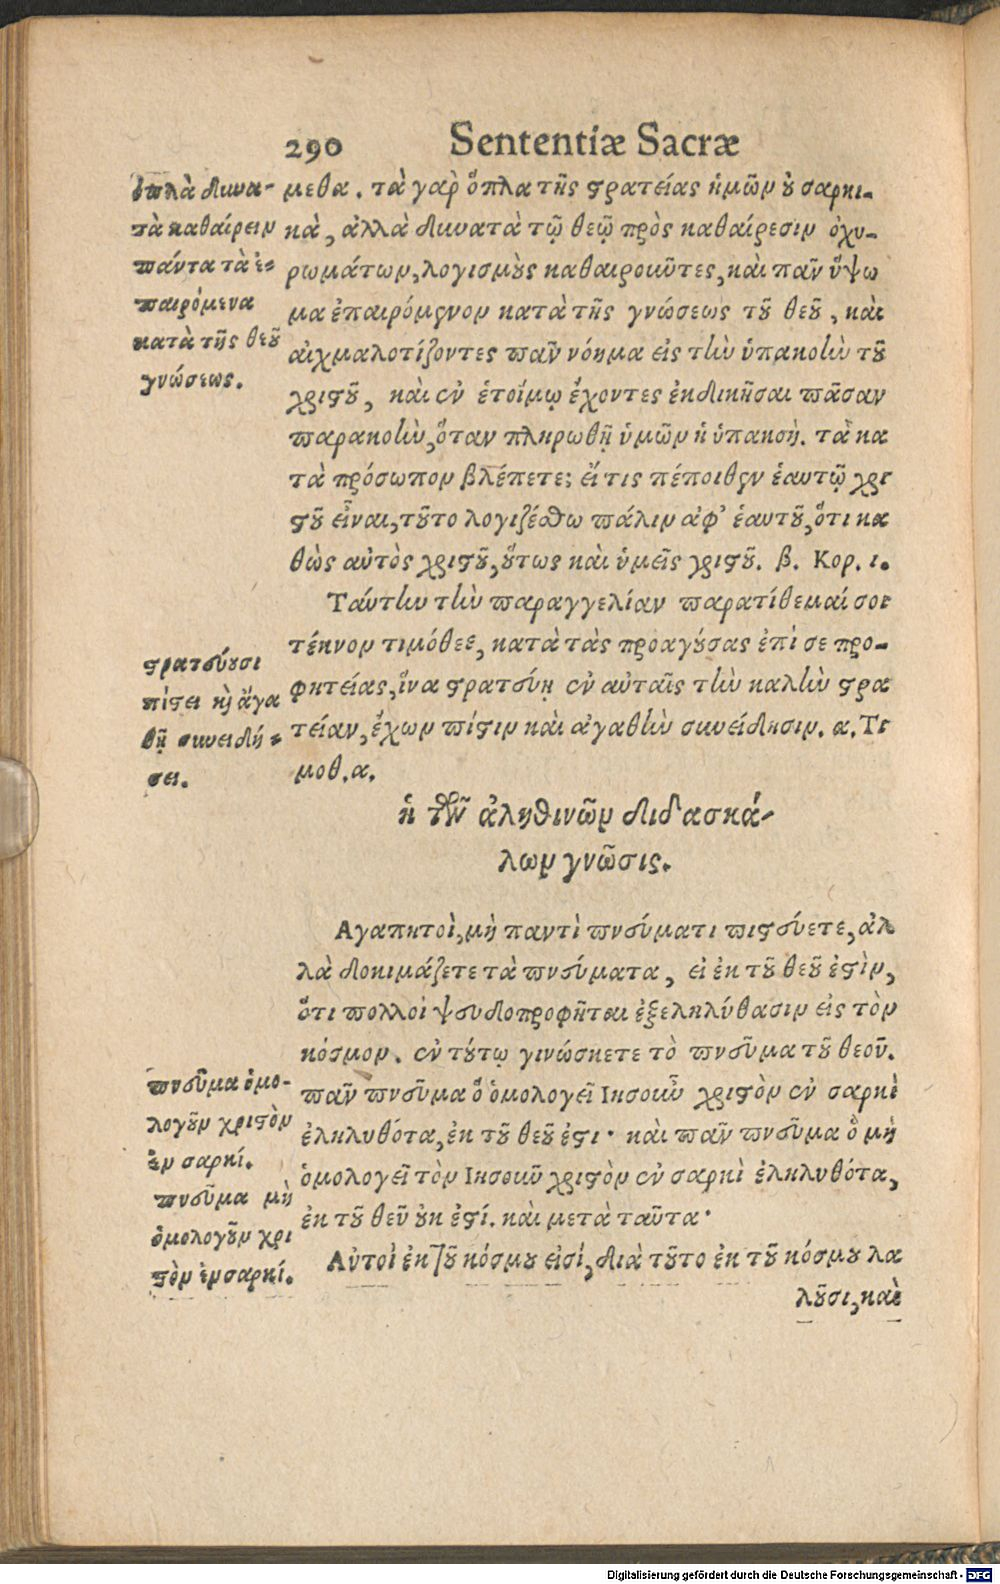 290 Sententiæ Sacræ
ὁπλὰ δυνα-
τὰ καθαίρειν
πάντα τὰ ἐ-
παιρόμενα
κατὰ τῆς θεοῦ
γνώσεως.
μεθα. τὰ γαρ̀ ὅπλα τῆς στρατείας ἡμῶν οὐ σαρκι-
κὰ, ἀλλὰ δυνατὰ τῷ θεῷ πρὸς καθαίρεσιν ὀχυ-
ρωμάτων, λογισμοὺς καθαιροωῦτες, καὶ παῖν ὕψω
μα ἐπαιρόμενον κατὰ τῆς γνώσεως τοῦ θεοῦ, καὶ
αἰχμαλοτίζοντες παῖν νόημα εἰς τὴν ὑπακοὴν τοῦ
χριστοῦ, καὶ ἐν ἑτοίμῳ ἔχοντες ἐκδικῆσαι πᾶσαν
παρακοὴν, ὅταν πληρωθῇ ὑμῶν ἡ ὑπακοή. τὰ κα
τὰ πρόσωπον βλέπετε; εἴ τις πέποιθεν ἑαυτῷ χρι
στοῦ εἶναι, τοῦτο λογιζέσθω πάλιν ἀφ’ ἑαυτοῦ, ὅτι κα
θὼς αὐτὸς χριστοῦ, οὕτως καὶ ὑμεῖς χριστοῦ. β. Κορ. ι.
Ταύτην τὴν παραγγελίαν παρατίθεμαί σοι
τέκνον τιμόθεε, κατὰ τὰς προαγούσας ἐπί σε προ-
φητείας, ἵνα στρατεύῃ ἐν αὐταῖς τὴν καλὴν στρα
τείαν, ἔχων πίστιν καὶ ἀγαθὴν συνείδησιν. α. Τι
μοθ. α.
στρατεύουσι
πίστει κỳ ἀγα
θῇ συνειδή-
σει.
ἡ τῶν ἀληθινῶν διδασκά-
λων γνῶσις.
Αγαπητοὶ, μὴ παντὶ πνεύματι πιστεύετε, ἀλ
λὰ δοκιμάζετε τὰ πνεύματα, εἰ ἐκ τοῦ θεοῦ ἐστὶν,
ὅτι πολλοὶ ψευδοπροφῆται ἐξεληλύθασιν εἰς τὸν
κόσμον. ἐν τούτῳ γινώσκετε τὸ πνεῦμα τοῦ θεοῦ.
παῖν πνεῦμα ὃ ὁμολογεῖ Ιησοωῦ χριστὸν ἐν σαρκὶ
ἐληλυθότα, ἐκ τοῦ θεοῦ ἐστι· καὶ παῖν πνεῦμα ὃ μὴ
ὁμολογεῖ τὸν Ιησοωῦ χριστὸν ἐν σαρκὶ ἐληλυθότα,
ἐκ τοῦ θεοῦ οὐκ ἐστί. καὶ μετὰ ταῦτα·
Αὐτοὶ ἐκ τοῦ κόσμου εἰσί, διὰ τοῦτο ἐκ τοῦ κόσμου λα
λοῦσι, καὶ
πνεῦμα ὁμο-
λογοῦν χριστὸν
ἐν σαρκί.
πνεῦμα μὴ
ὁμολογοῦν χρι
στὸν ἐν σαρκί.
Digitalisierung gefördert durch die Deutsche Forschungsgemeinschaft - DFG